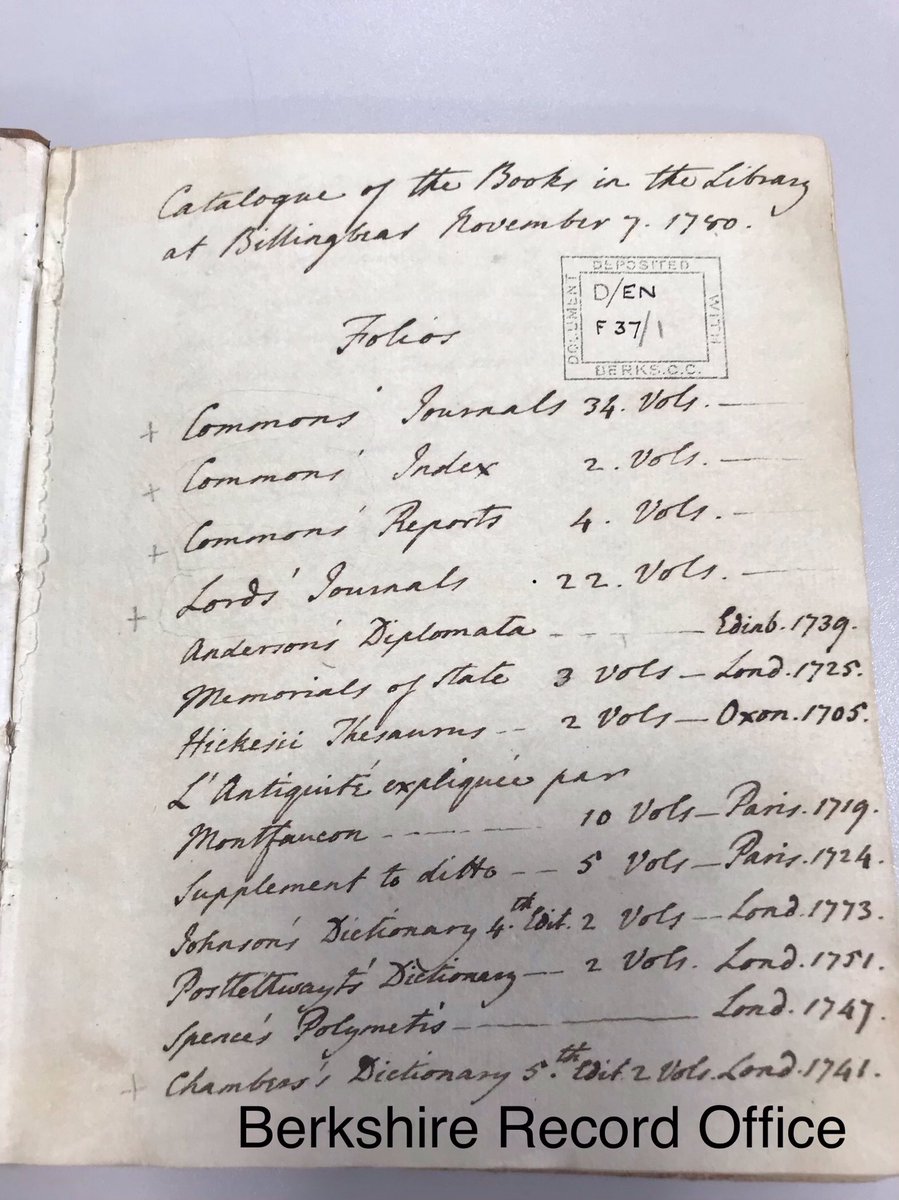 Catalogue of the Books in the Library
at Billingbear November 7. 1780.
DOCUMENT DEPOSITED WITH BERKS.C.C.
D/EN
F 37/1
Folios
+ Commons' Journals 34. Vols. —
+ Commons' Index 2. Vols. —
+ Commons' Reports 4. Vols. —
+ Lords' Journals 22. Vols. —
Anderson's Diplomata — Edinb. 1739.
Memorials of State 3 Vols — Lond. 1725.
Hickesii Thesaurus -- 2 Vols — Oxon. 1705.
L'Antiquité expliquée par
Montfaucon ------ 10 Vols — Paris. 1719.
Supplement to ditto -- 5 Vols — Paris. 1724.
Johnson's Dictionary 4.th Edit. 2 Vols — Lond. 1773.
Postlethwayt's Dictionary — 2 Vols. Lond. 1751.
Spence's Polymetis — Lond. 1747.
+ Chambers's Dictionary 5.th Edit. 2 Vols. Lond. 1741.
Berkshire Record Office